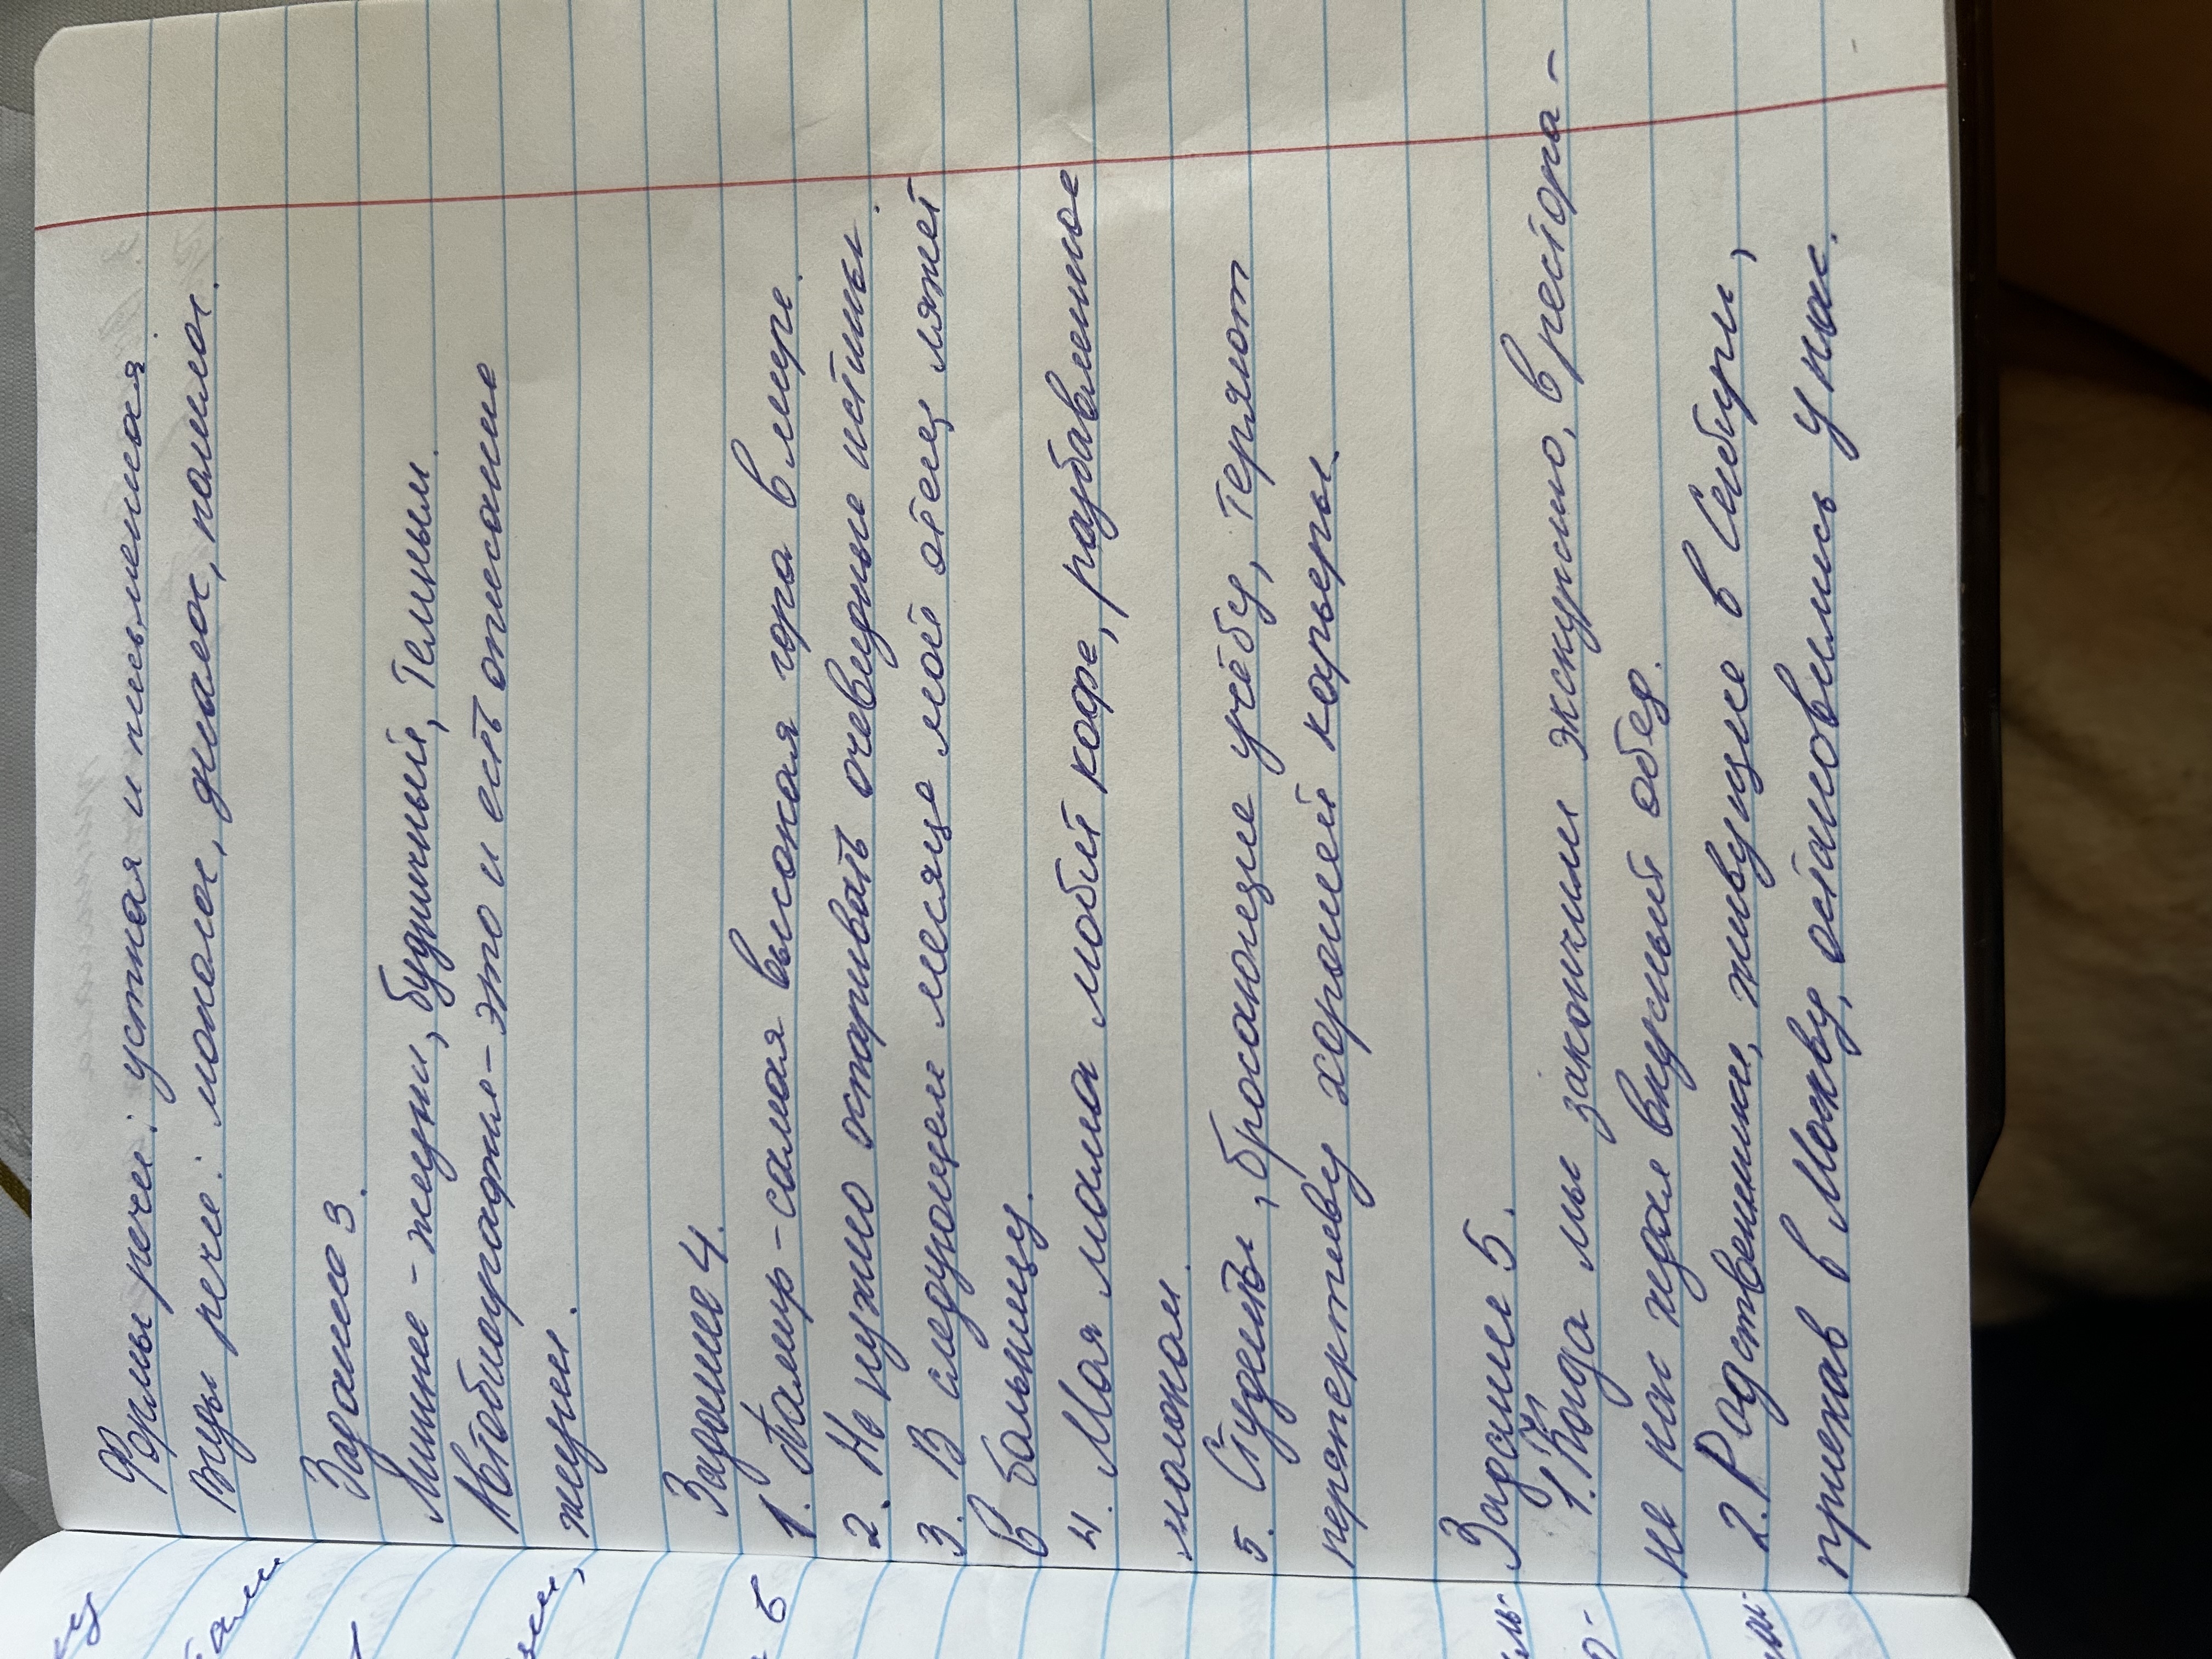 Формы речи: устная и письменная.
Виды речи: монолог, диалог, полилог.
Задание 3.
Лишнее - жизни, будничный, Темным.
Автобиография - это и есть описание
жизни.
Задание 4.
1. Памир - самая высокая гора в мире.
2. Не нужно оспаривать очевидные истины.
3. В следующем месяце мой отец ляжет
в больницу.
4. Моя мама любит кофе, разбавленное
молоком.
5. Студенты, бросающие учёбу, теряют
перспективу хорошей карьеры.
Задание 5.
1. Когда мы закончили экскурсию, в рестора-
не нас ждал вкусный обед.
2. Родственники, живущие в Сибири,
приехав в Москву, остановились у нас.